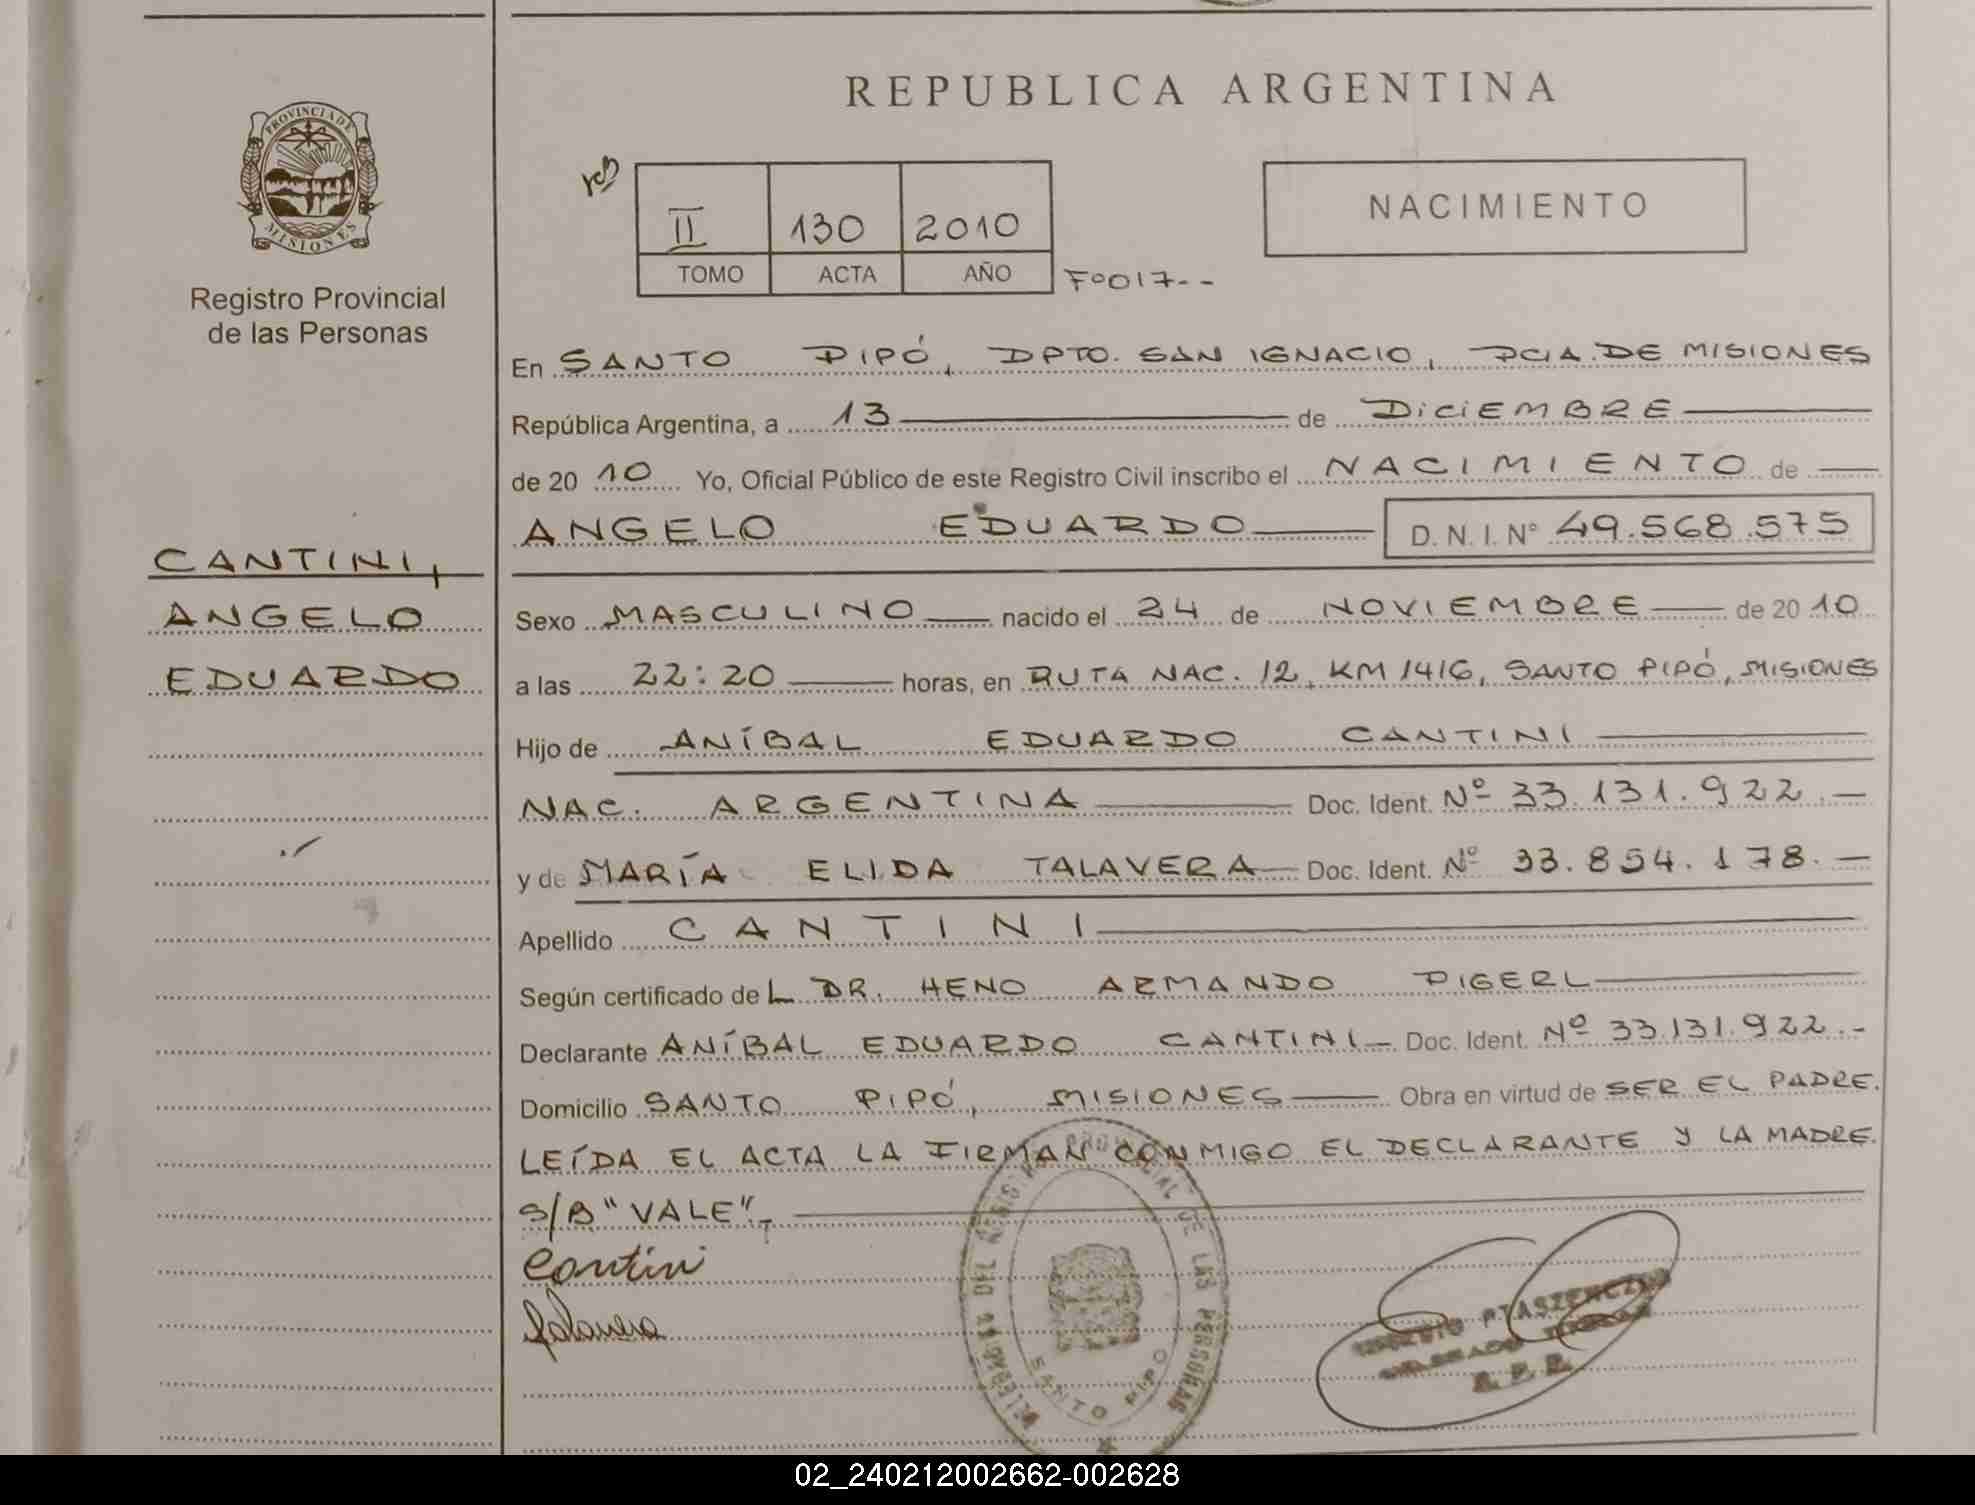 PROVINCIA DE
MISIONES
Registro Provincial
de las Personas
CANTINI,
ANGELO
EDUARDO
REPUBLICA ARGENTINA
II 130 2010
TOMO ACTA AÑO Fº017--
NACIMIENTO
En SANTO PIPÓ, DPTO. SAN IGNACIO, PCIA. DE MISIONES
República Argentina, a 13 de DICIEMBRE
de 20 10 Yo, Oficial Público de este Registro Civil inscribo el NACIMIENTO de
ANGELO EDUARDO D.N.I. Nº 49.568.575
Sexo MASCULINO nacido el 24 de NOVIEMBRE de 20 10
a las 22:20 horas, en RUTA NAC. 12, KM 1416, SANTO PIPÓ, MISIONES
Hijo de ANÍBAL EDUARDO CANTINI
NAC. ARGENTINA Doc. Ident. Nº 33.131.922.-
y de MARÍA ELIDA TALAVERA Doc. Ident. Nº 33.854.178.-
Apellido CANTINI
Según certificado de L DR. HENO ARMANDO PIGERL
Declarante ANÍBAL EDUARDO CANTINI- Doc. Ident. Nº 33.131.922.-
Domicilio SANTO PIPÓ, MISIONES Obra en virtud de SER EL PADRE.
LEÍDA EL ACTA LA FIRMAN CONMIGO EL DECLARANTE Y LA MADRE.
S/B "VALE".-
Cantini
Talavera
DEL REGISTRO PROVINCIAL DE LAS PERSONAS
SANTO PIPO
02_240212002662-002628